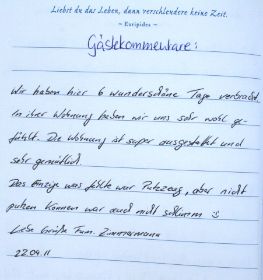 Liebst du das Leben, dann verschleudere keine Zeit.
~ Euripides ~
Gästekommentare:
Wir haben hier 6 wunderschöne Tage verbracht.
In ihrer Wohnung haben wir uns sehr wohl ge-
fühlt. Die Wohnung ist super ausgestattet und
sehr gemütlich.
Das einzige was fehlte war Putzzeug, aber nicht
putzen können war auch nicht schlimm :)
Liebe Grüße Fam. Zimmermann
22.09.11